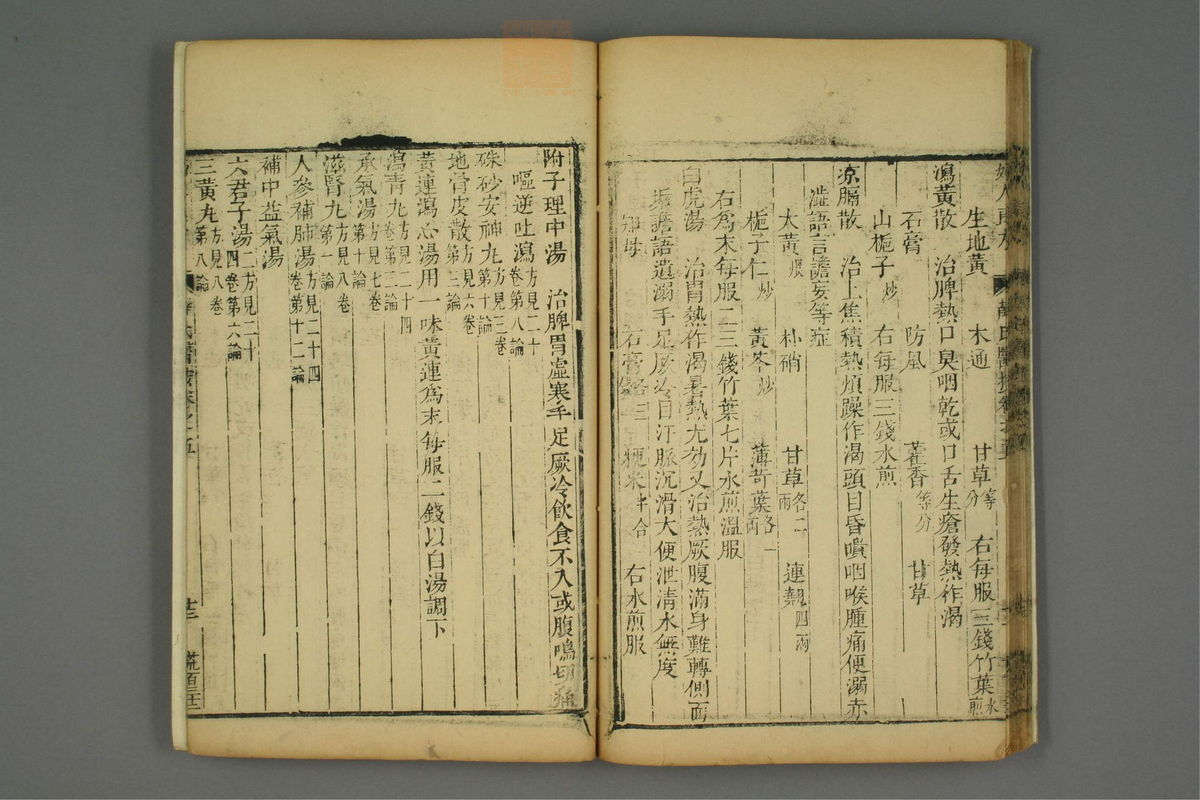 生地黃 木通 甘草等分 右每服三錢竹葉水煎
瀉黃散 治脾熱口臭咽乾或口舌生瘡發熱作渴
石膏 防風 藿香等分 甘草
山梔子炒 右每服三錢水煎
凉膈散 治上焦積熱煩躁作渴頭目昏嘳咽喉腫痛便溺赤
澁語言譫妄等症
大黃煨 朴硝 甘草各二兩 連翹四兩
梔子仁炒 黃芩炒 薄苛葉各一兩
右爲末每服二三錢竹葉七片水煎溫服
白虎湯 治胃熱作渴暑熱尤効又治熱厥腹滿身難轉側面
垢譫語遺溺手足厥冷自汗脈沉滑大便泄清水無度
知母 石膏 粳米半合 右水煎服
附子理中湯 治脾胃虛寒手足厥冷飲食不入或腹鳴切痛
嘔逆吐瀉方見二十卷第八論
硃砂安神丸方見三卷第十論
地骨皮散方見六卷第三論
黃連瀉心湯用一味黃連爲末每服二錢以白湯調下
瀉青丸方見二十四卷第三論
承氣湯方見七卷第十論
滋腎丸方見八卷第一論
人參補肺湯方見二十四卷第十二論
補中益氣湯
六君子湯二方見二十四卷第六論
三黃丸方見八卷第八論